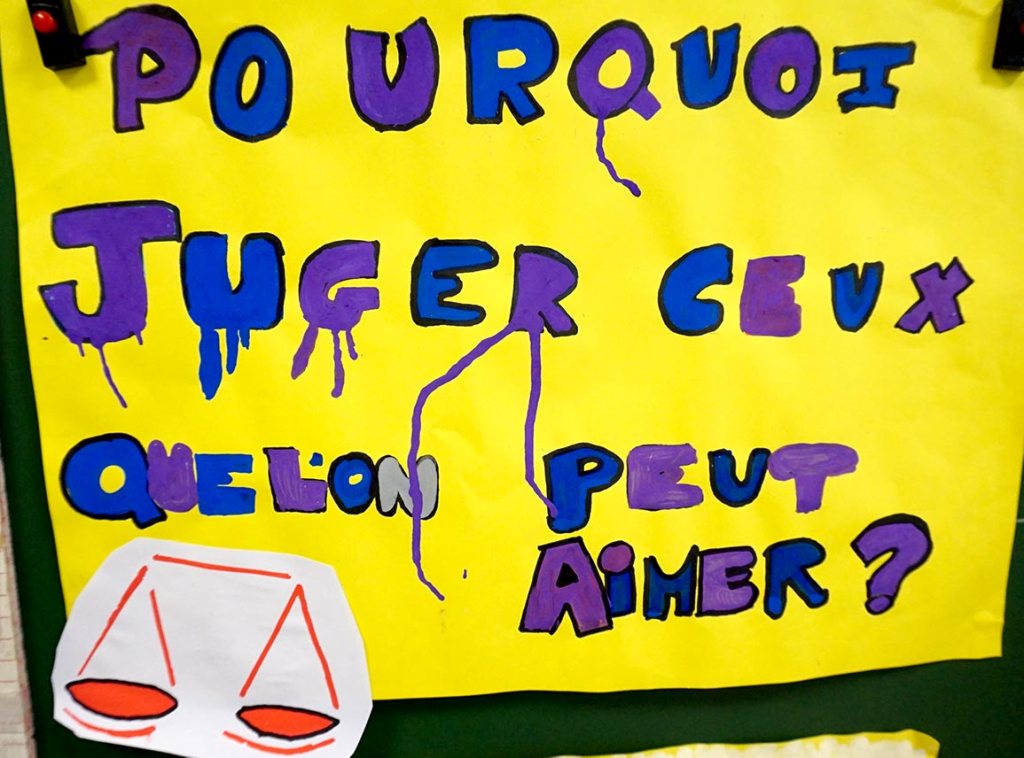 POURQUOI
JUGER CEUX
QUE L'ON PEUT
AIMER?